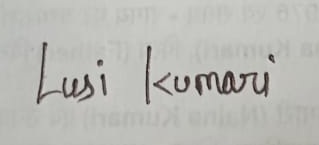 Lusi Kumari